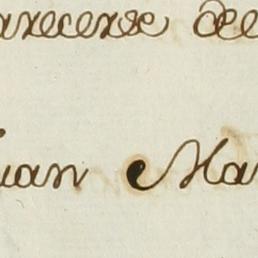 arecerse de
uan Ma